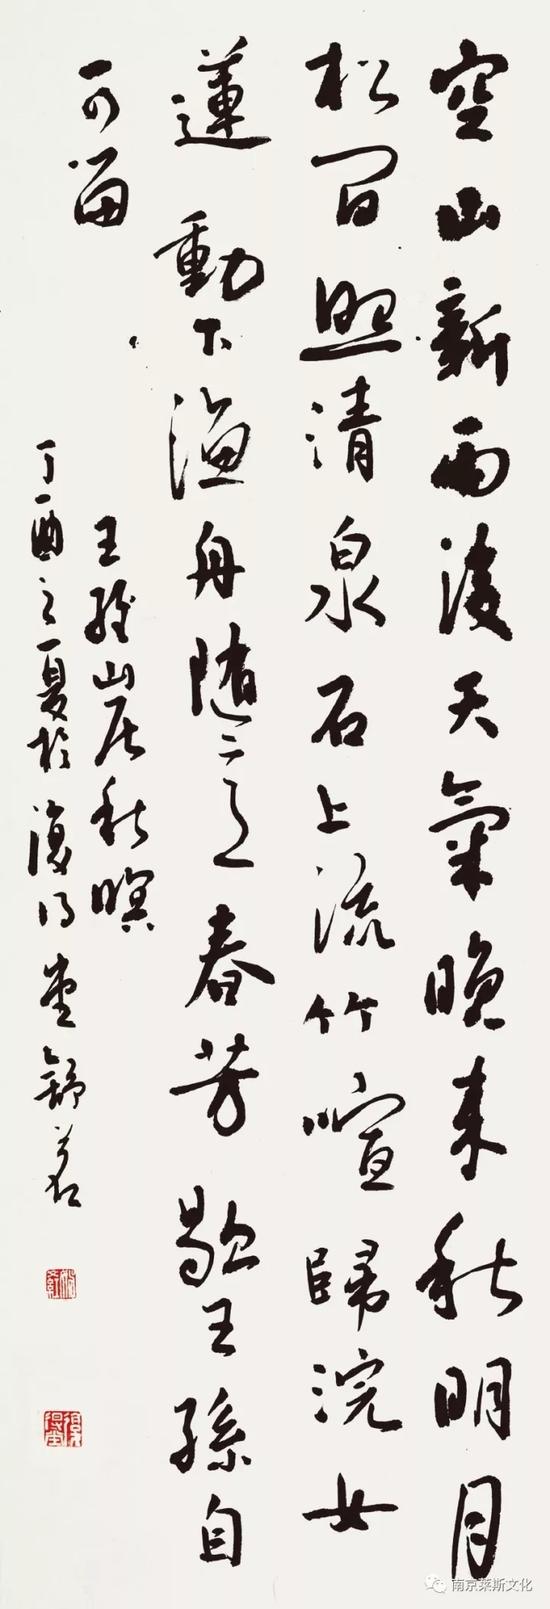 空山新雨後天氣晚来秋明月
松間照清泉石上流竹喧歸浣女
蓮動下漁舟随二意春芳歇王孫自
可留
王維山居秋暝
丁酉之夏於復得堂舒茗
復得堂
南京莱斯文化